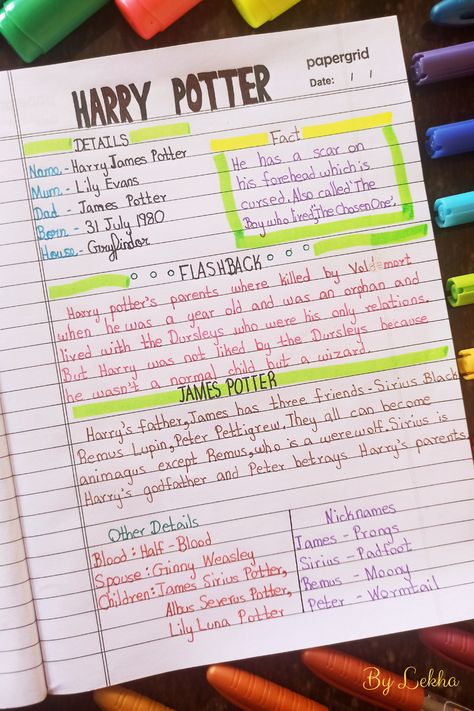 papergrid
Date: / /
HARRY POTTER
DETAILS
Name - Harry James Potter
Mum - Lily Evans
Dad - James Potter
Born - 31 July 1980
House - Gryffindor
Fact
He has a scar on
his forehead which is
cursed. Also called 'The
Boy who lived', 'The Chosen One'.
FLASHBACK
Harry potter's parents where killed by Voldemort
when he was a year old and was an orphan and
lived with the Dursleys who were his only relations.
But Harry was not liked by the Dursleys because
he wasn't a normal child but a wizard.
JAMES POTTER
Harry's father, James has three friends - Sirius Black
Remus Lupin, Peter Pettigrew. They all can become
animagus except Remus, who is a werewolf. Sirius is
Harry's godfather and Peter betrays Harry's parents
Other Details
Blood : Half - Blood
Spouse : Ginny Weasley
Children : James Sirius Potter,
Albus Severus Potter,
Lily Luna Potter
Nicknames
James - Prongs
Sirius - Padfoot
Remus - Moony
Peter - Wormtail
By Lekha